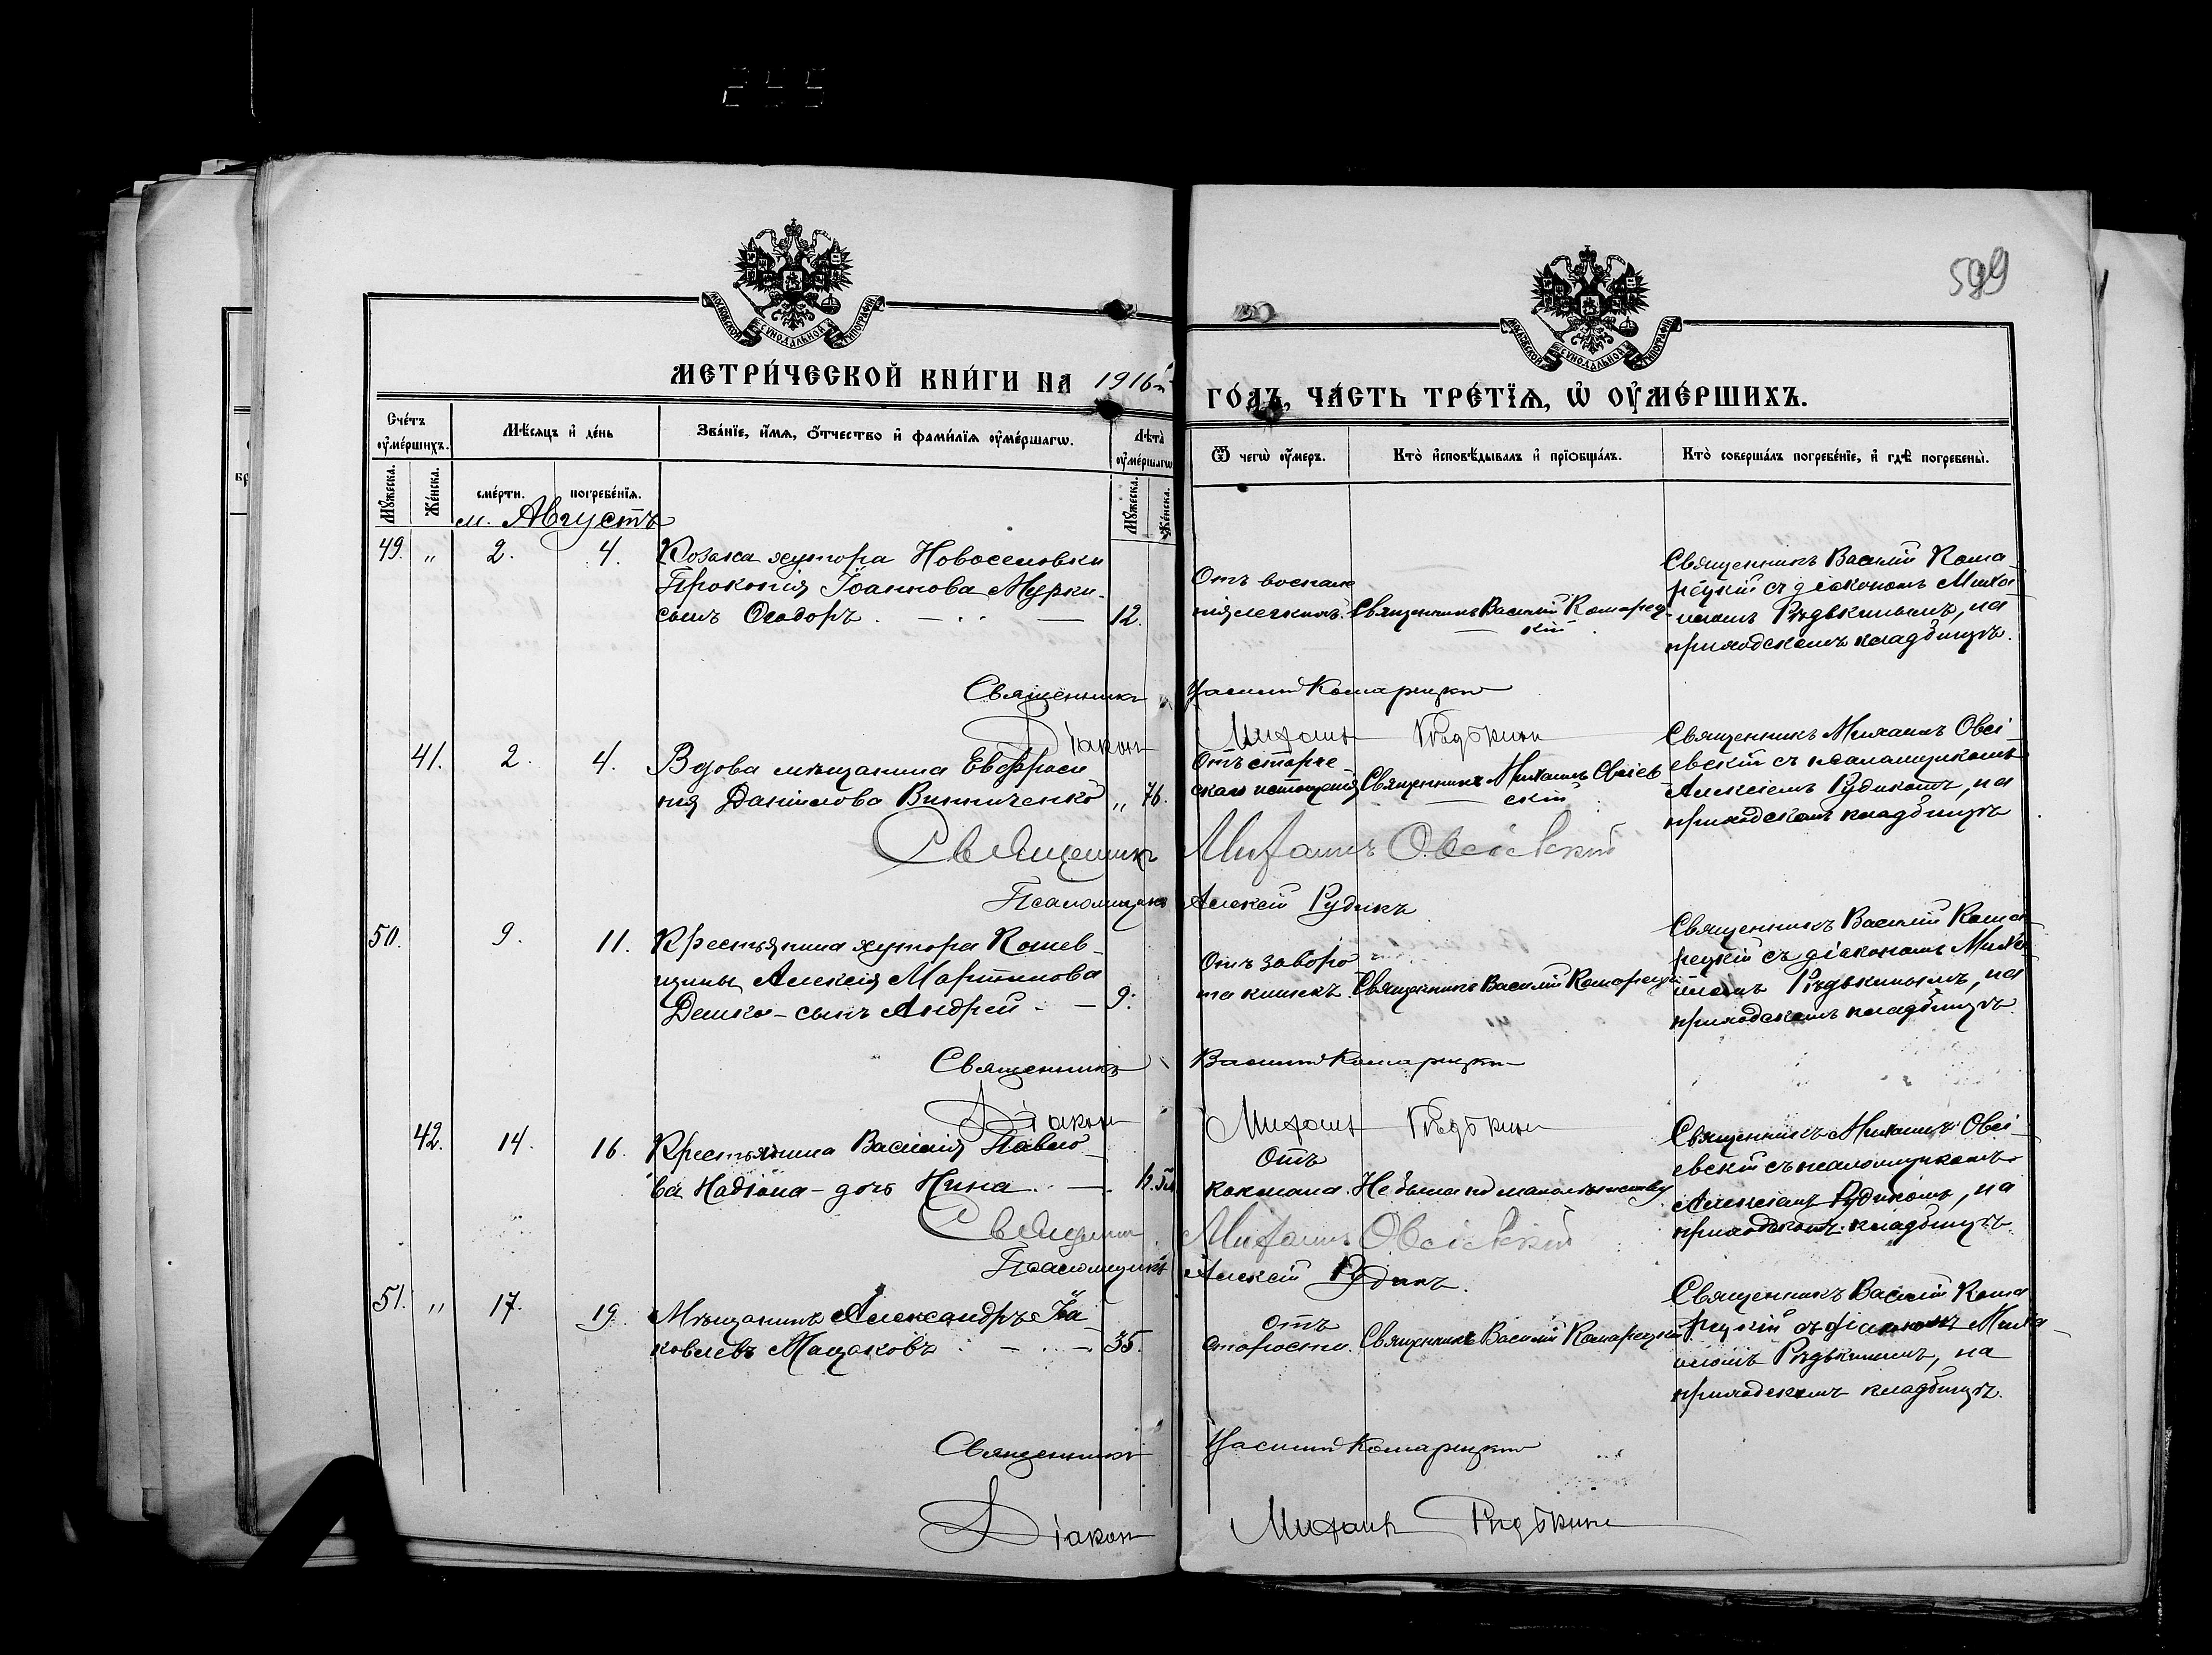 599
МОСКОВСКОЙ СУНОДАЛЬНОЙ ТИПОГРАФІИ
МОСКОВСКОЙ СУНОДАЛЬНОЙ ТИПОГРАФІИ
МЕТРИ́ЧЕСКОЙ КНИ́ГИ НА 1916й
ГО́ДЪ, ЧА́СТЬ ТРЕ́ТЇѦ, Ѡ҆ ОУ҆МЕ́РШИХЪ.
Сче́тъ оу҆ме́ршихъ.
Мѣ́сяцъ и҆ де́нь
Зва́нїе, и҆́мѧ, ѻ҆́тчество и҆ фами́лїѧ оу҆ме́ршагѡ.
Лѣта̀ оу҆ме́ршагѡ
Ѿ чегѡ̀ оу҆́меръ.
Кто̀ и҆сповѣ́дывалъ и҆ прїобща́лъ.
Кто̀ соверша́лъ погребе́нїе, и҆ гдѣ̀ погребены̀.
Мꙋ́жеска.
Же́нска.
сме́рти.
погребе́нїѧ.
Мꙋ́жеска.
Же́нска.
м. Августъ
49. " 2. 4. Козака хутора Новоселовки
Прокопія Іоаннова Мурки
сынъ Ѳеодоръ. 12.
Отъ воспале
нія легкихъ. Священникъ Василій Комарец
кій
Священникъ Василій Кома
рецкій съ діакономъ Миха
иломъ Рѣдькинымъ, на
приходскомъ кладбищѣ.
Священникъ Василій Комарецкій
Діакон Михаил Рѣдькин
41. 2. 4. Вдова мѣщанина Евфроси
нія Даніилова Винниченко " 76.
Отъ старче
скаго истощенія Священникъ Михаилъ Овсіев
скій
Священникъ Михаилъ Овсі
евскій съ псаломщикомъ
Алексіемъ Рудикомъ, на
приходскомъ кладбищѣ
Священникъ Михаилъ Овсіевскій
Псаломщикъ Алексій Рудикъ
50. 9. 11. Крестьянина хутора Кошев
щины Алексія Мартинова
Дешко - сынъ Андрей. 9.
Отъ заворо
та кишекъ. Священникъ Василій Комарецкій
Священникъ Василій Кома
рецкій съ діакономъ Миха
иломъ Рѣдькинымъ, на
приходскомъ кладбищѣ.
Священникъ Василій Комарецкій
Діакон Михаил Рѣдькин
42. 14. 16. Крестьянина Василія Павло
ва - дочь Нина.
Отъ
коклюша. Не была по малолѣтству
Священникъ Михаилъ Овсі
евскій съ псаломщикомъ
Алексіемъ Рудикомъ, на
приходскомъ кладбищѣ.
Священник Михаилъ Овсіевскій
Псаломщикъ Алексій Рудикъ.
51. " 17. 19. Мѣщанинъ Александръ Іа
ковлевъ Мащаковъ. 35.
Отъ
Священникъ Василій Комарецкій
Священникъ Василій Кома
рецкій съ діакономъ Миха
иломъ Рѣдькинымъ, на
приходскомъ кладбищѣ.
Священникъ Василій Комарецкій
Діакон Михаил Рѣдькин